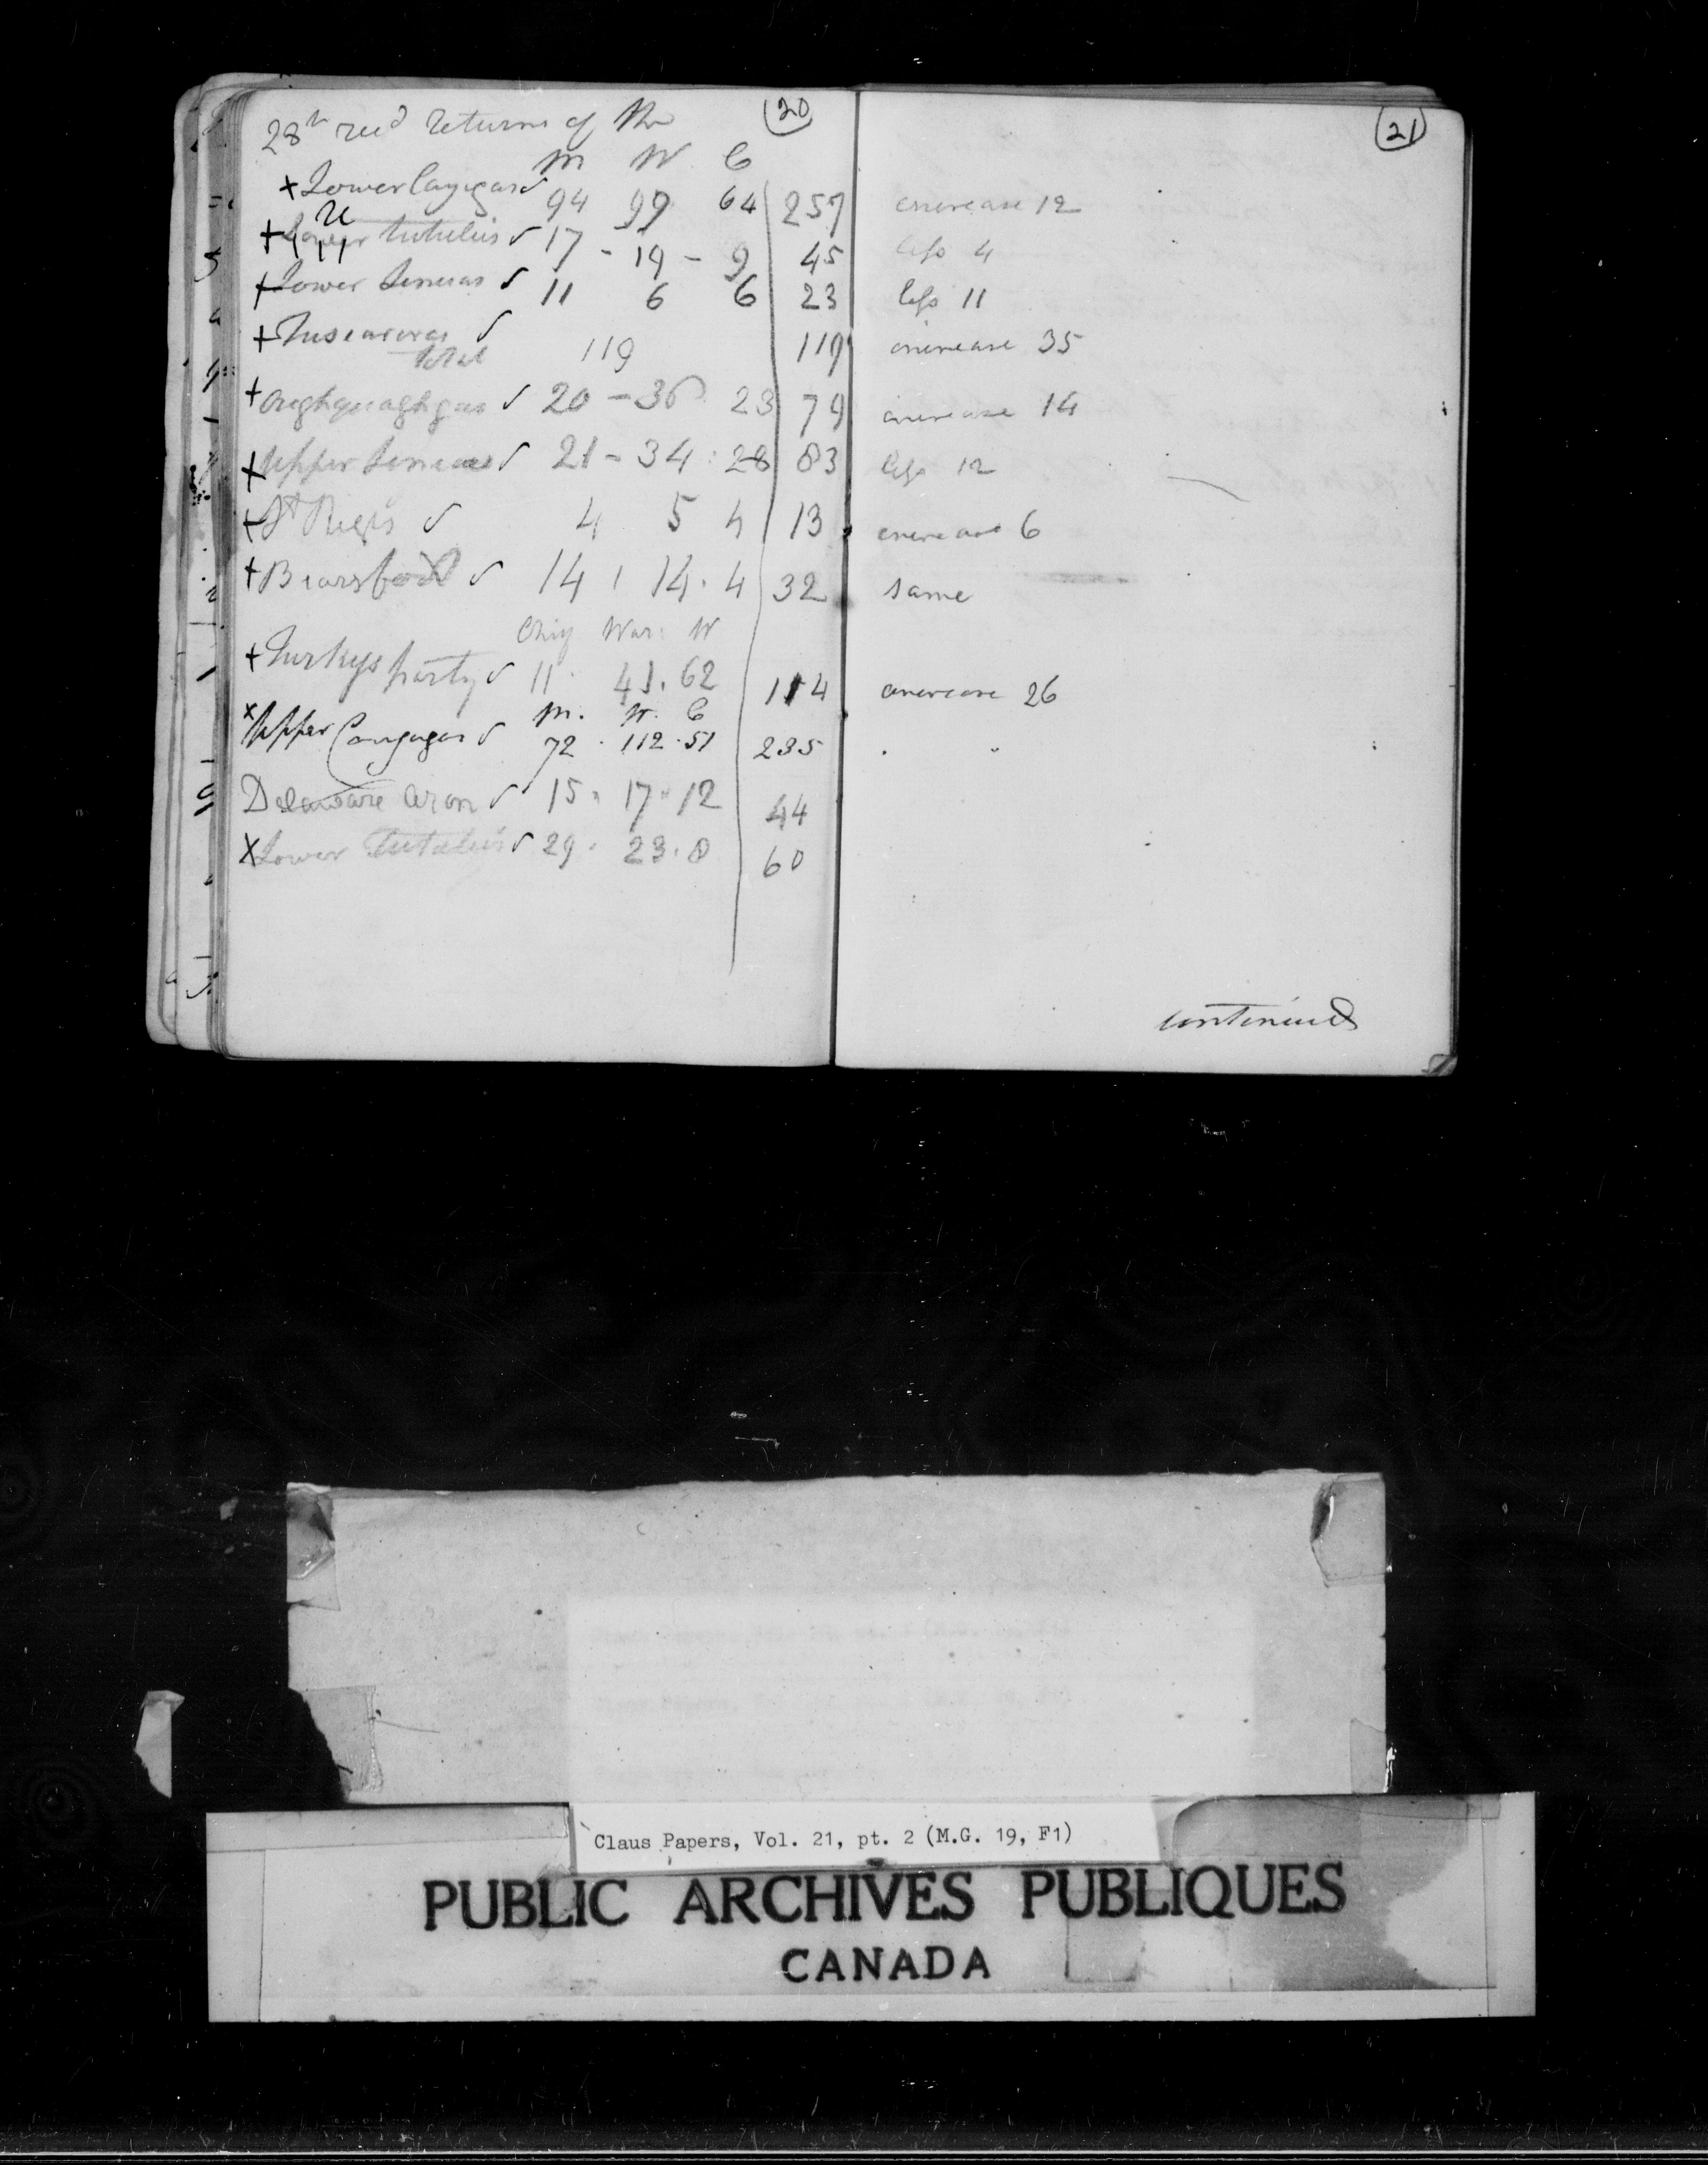 28th recd returns of the
20
M W C
+ Lower Cayugas ✓ 94 99 64 257
+ Upper tutulies ✓ 17 - 19 - 9 45
+ Lower Senecas ✓ 11 6 6 23
+ Tuscarora ✓
total 119 119
+ Oughquaghgas ✓ 20 - 36 23 79
+ Upper Senecas ✓ 21 - 34 : 28 83
+ St Regis ✓ 4 5 4 13
+ Bearsfoot ✓ 14 14 . 4 32
Chiy War : W
+ Turkys party ✓ 11 . 41 . 62 114
M . W . C
x Upper Cayugas ✓ 72 . 112 . 51 235
Delaware Aron ✓ 15 " 17 " 12 44
x Lower Tutulies ✓ 29 . 23 . 8 60
21
encrease 12
less 4
less 11
encrease 35
encrease 14
less 12
encrease 6
same
encrease 26
continued
Claus Papers, Vol. 21, pt. 2 (M.G. 19, F1)
PUBLIC ARCHIVES PUBLIQUES
CANADA